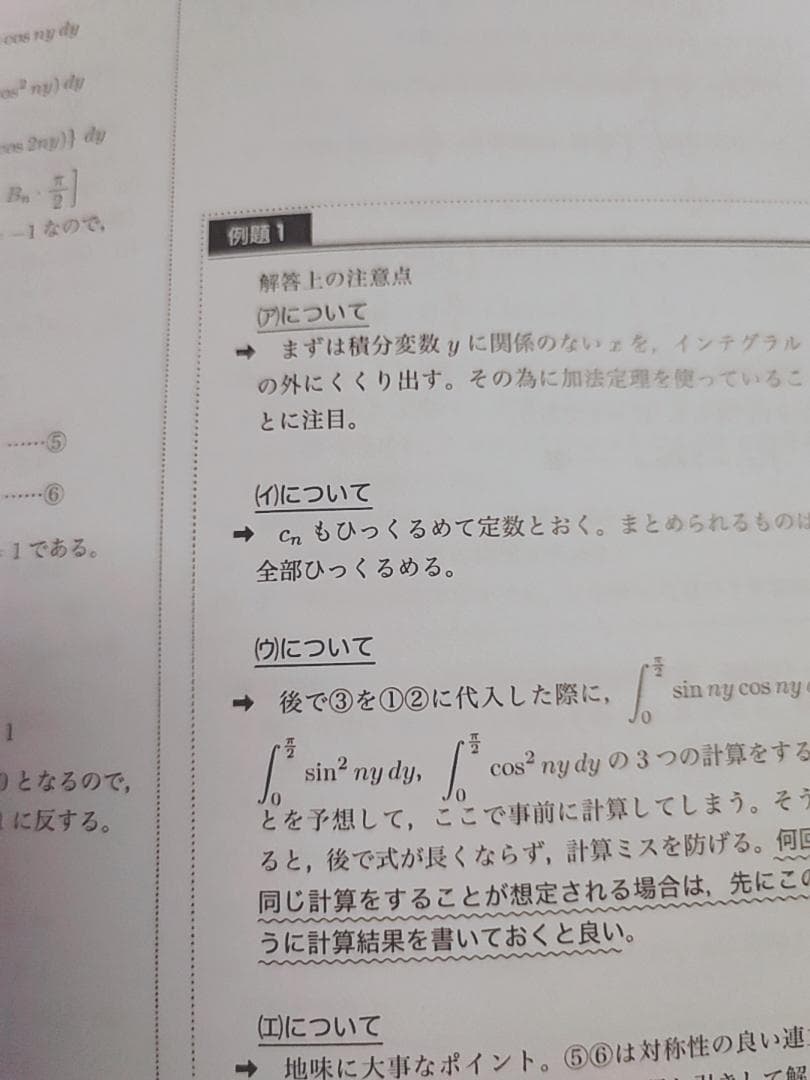 cos ny dy
cos² ny) dy
cos 2ny)} dy
Bₙ · π/2]
−1 なので,
……⑤
……⑥
1 である。
1
0 となるので,
に反する。
例題 1
解答上の注意点
(ア)について
➡ まずは積分変数 y に関係のない x を, インテグラル
の外にくくり出す。その為に加法定理を使っているこ
とに注目。
(イ)について
➡ cₙ もひっくるめて定数とおく。まとめられるものは
全部ひっくるめる。
(ウ)について
➡ 後で③を①②に代入した際に, ∫₀^{π/2} sin ny cos ny
∫₀^{π/2} sin² ny dy, ∫₀^{π/2} cos² ny dy の 3 つの計算をする
とを予想して, ここで事前に計算してしまう。そう
ると, 後で式が長くならず, 計算ミスを防げる。何回
同じ計算をすることが想定される場合は, 先にこの
うに計算結果を書いておくと良い。
(エ)について
➡ 地味に大事なポイント。⑤⑥は対称性の良い連